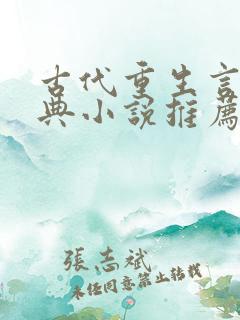 古代重生言
典小說推薦
張志斌
未經同意禁止轉載